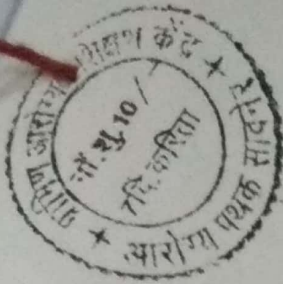 ग्रामिण आरोग्य प्रशिक्षण केंद्र + आरोग्य पथक सावनेर +
नों.शु.10/
दि.करिता